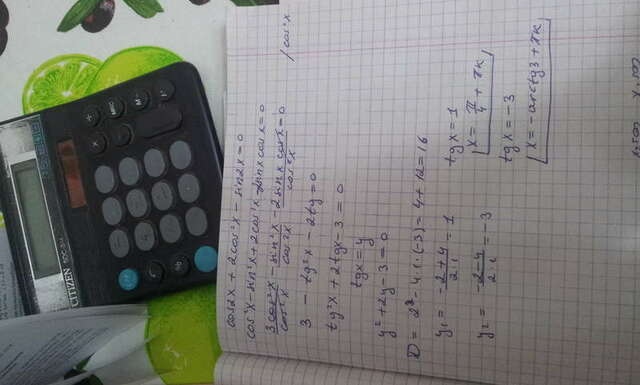 cos2x + 2cos²x - sin2x = 0
cos²x - sin²x + 2cos²x - 2sinx cosx = 0 / cos²x
3cos²x/cos²x - sin²x/cos²x - 2sinx cosx/cos²x = 0
3 - tg²x - 2tg = 0
tg²x + 2tgx - 3 = 0
tgx = y
y² + 2y - 3 = 0
D = 2² - 4·1·(-3) = 4 + 12 = 16
y₁ = (-2+4)/(2·1) = 1
y₂ = (-2-4)/(2·1) = -3
tgx = 1
x = π/4 + πk
tgx = -3
x = -arctg3 + πk
CITIZEN